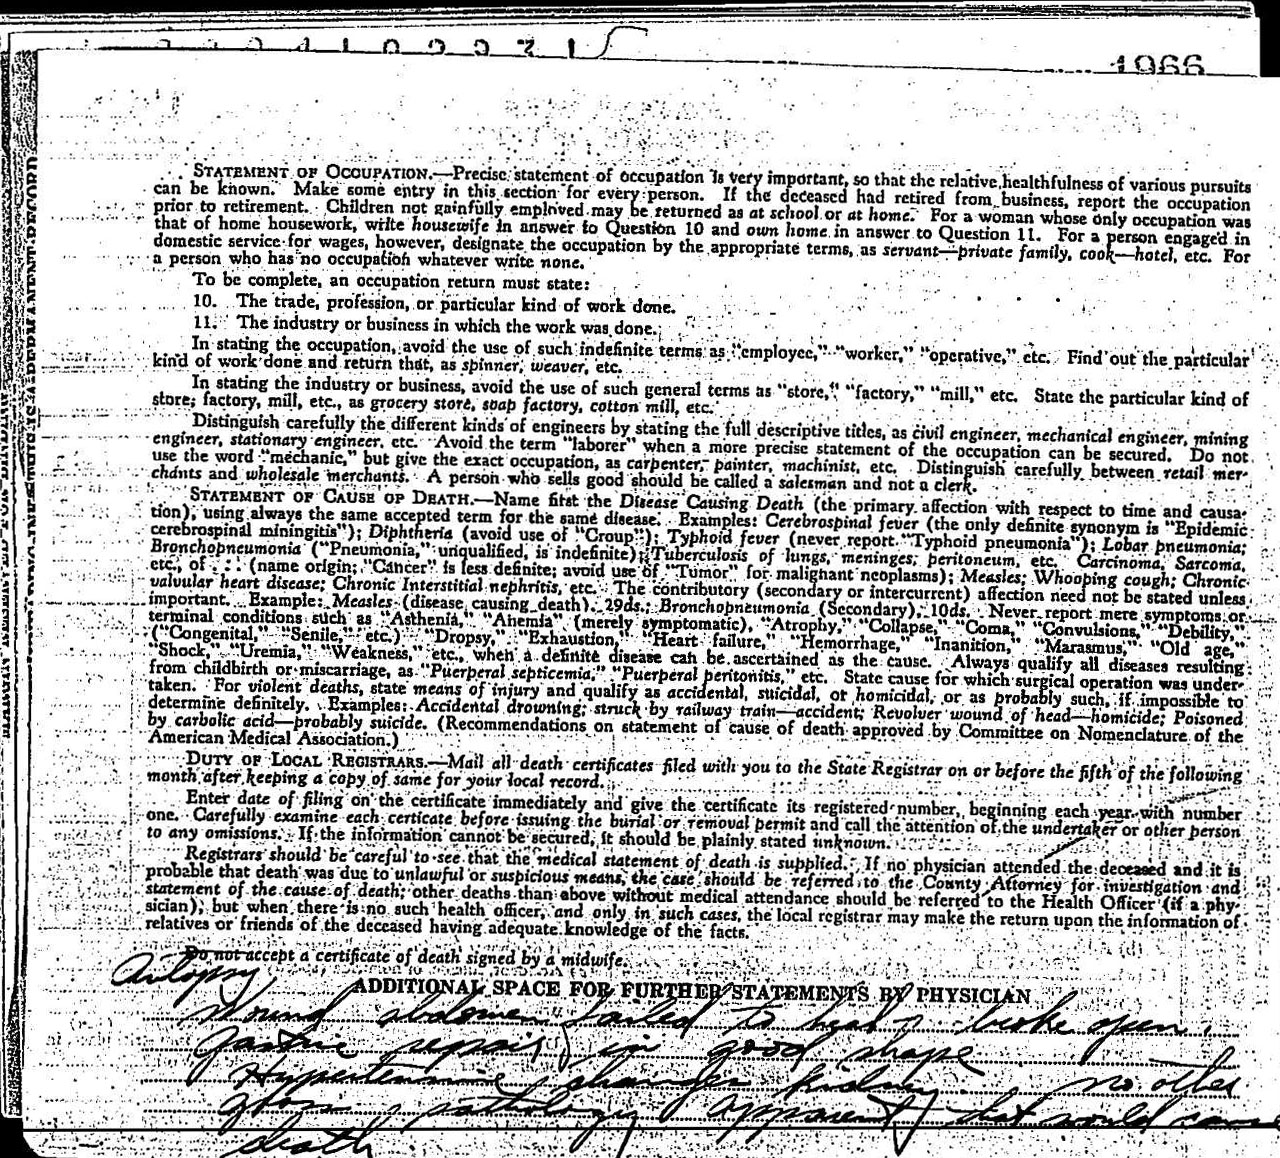 1966
STATEMENT OF OCCUPATION.—Precise statement of occupation is very important, so that the relative healthfulness of various pursuits
can be known. Make some entry in this section for every person. If the deceased had retired from business, report the occupation
prior to retirement. Children not gainfully employed may be returned as at school or at home. For a woman whose only occupation was
that of home housework, write housewife in answer to Question 10 and own home in answer to Question 11. For a person engaged in
domestic service for wages, however, designate the occupation by the appropriate terms, as servant—private family, cook—hotel, etc. For
a person who has no occupation whatever write none.
To be complete, an occupation return must state:
10. The trade, profession, or particular kind of work done.
11. The industry or business in which the work was done.
In stating the occupation, avoid the use of such indefinite terms as "employee," "worker," "operative," etc. Find out the particular
kind of work done and return that, as spinner, weaver, etc.
In stating the industry or business, avoid the use of such general terms as "store," "factory," "mill," etc. State the particular kind of
store, factory, mill, etc., as grocery store, soap factory, cotton mill, etc.
Distinguish carefully the different kinds of engineers by stating the full descriptive titles, as civil engineer, mechanical engineer, mining
engineer, stationary engineer, etc. Avoid the term "laborer" when a more precise statement of the occupation can be secured. Do not
use the word "mechanic," but give the exact occupation, as carpenter, painter, machinist, etc. Distinguish carefully between retail mer-
chants and wholesale merchants. A person who sells good should be called a salesman and not a clerk.
STATEMENT OF CAUSE OF DEATH.—Name first the Disease Causing Death (the primary affection with respect to time and causa-
tion), using always the same accepted term for the same disease. Examples: Cerebrospinal fever (the only definite synonym is "Epidemic
cerebrospinal miningitis"); Diphtheria (avoid use of "Croup"); Typhoid fever (never report "Typhoid pneumonia"); Lobar pneumonia;
Bronchopneumonia ("Pneumonia," unqualified, is indefinite); Tuberculosis of lungs, meninges, peritoneum, etc. Carcinoma, Sarcoma,
etc., of . . . (name origin; "Cancer" is less definite; avoid use of "Tumor" for malignant neoplasms); Measles; Whooping cough; Chronic
valvular heart disease; Chronic Interstitial nephritis, etc. The contributory (secondary or intercurrent) affection need not be stated unless
important. Example: Measles (disease causing death), 29ds.; Bronchopneumonia (Secondary), 10ds. Never report mere symptoms or
terminal conditions such as "Asthenia," "Anemia" (merely symptomatic), "Atrophy," "Collapse," "Coma," "Convulsions," "Debility,"
("Congenital," "Senile," etc.) "Dropsy," "Exhaustion," "Heart failure," "Hemorrhage," "Inanition," "Marasmus," "Old age,"
"Shock," "Uremia," "Weakness," etc., when a definite disease can be ascertained as the cause. Always qualify all diseases resulting
from childbirth or miscarriage, as "Puerperal septicemia," "Puerperal peritonitis," etc. State cause for which surgical operation was under-
taken. For violent deaths, state means of injury and qualify as accidental, suicidal, or homicidal, or as probably such, if impossible to
determine definitely. Examples: Accidental drowning; struck by railway train—accident; Revolver wound of head—homicide; Poisoned
by carbolic acid—probably suicide. (Recommendations on statement of cause of death approved by Committee on Nomenclature of the
American Medical Association.)
DUTY OF LOCAL REGISTRARS.—Mail all death certificates filed with you to the State Registrar on or before the fifth of the following
month after keeping a copy of same for your local record.
Enter date of filing on the certificate immediately and give the certificate its registered number, beginning each year with number
one. Carefully examine each certicate before issuing the burial or removal permit and call the attention of the undertaker or other person
to any omissions. If the information cannot be secured, it should be plainly stated unknown.
Registrars should be careful to see that the medical statement of death is supplied. If no physician attended the deceased and it is
probable that death was due to unlawful or suspicious means, the case should be referred to the County Attorney for investigation and
statement of the cause of death; other deaths than above without medical attendance should be referred to the Health Officer (if a phy-
sician), but when there is no such health officer, and only in such cases, the local registrar may make the return upon the information of
relatives or friends of the deceased having adequate knowledge of the facts.
Do not accept a certificate of death signed by a midwife.
Autopsy
ADDITIONAL SPACE FOR FURTHER STATEMENTS BY PHYSICIAN
Wound abdomen failed to heal & broke open.
Gastric repair in good shape
Hypertensive changes kidney no other
gross pathology apparent that would cause
death